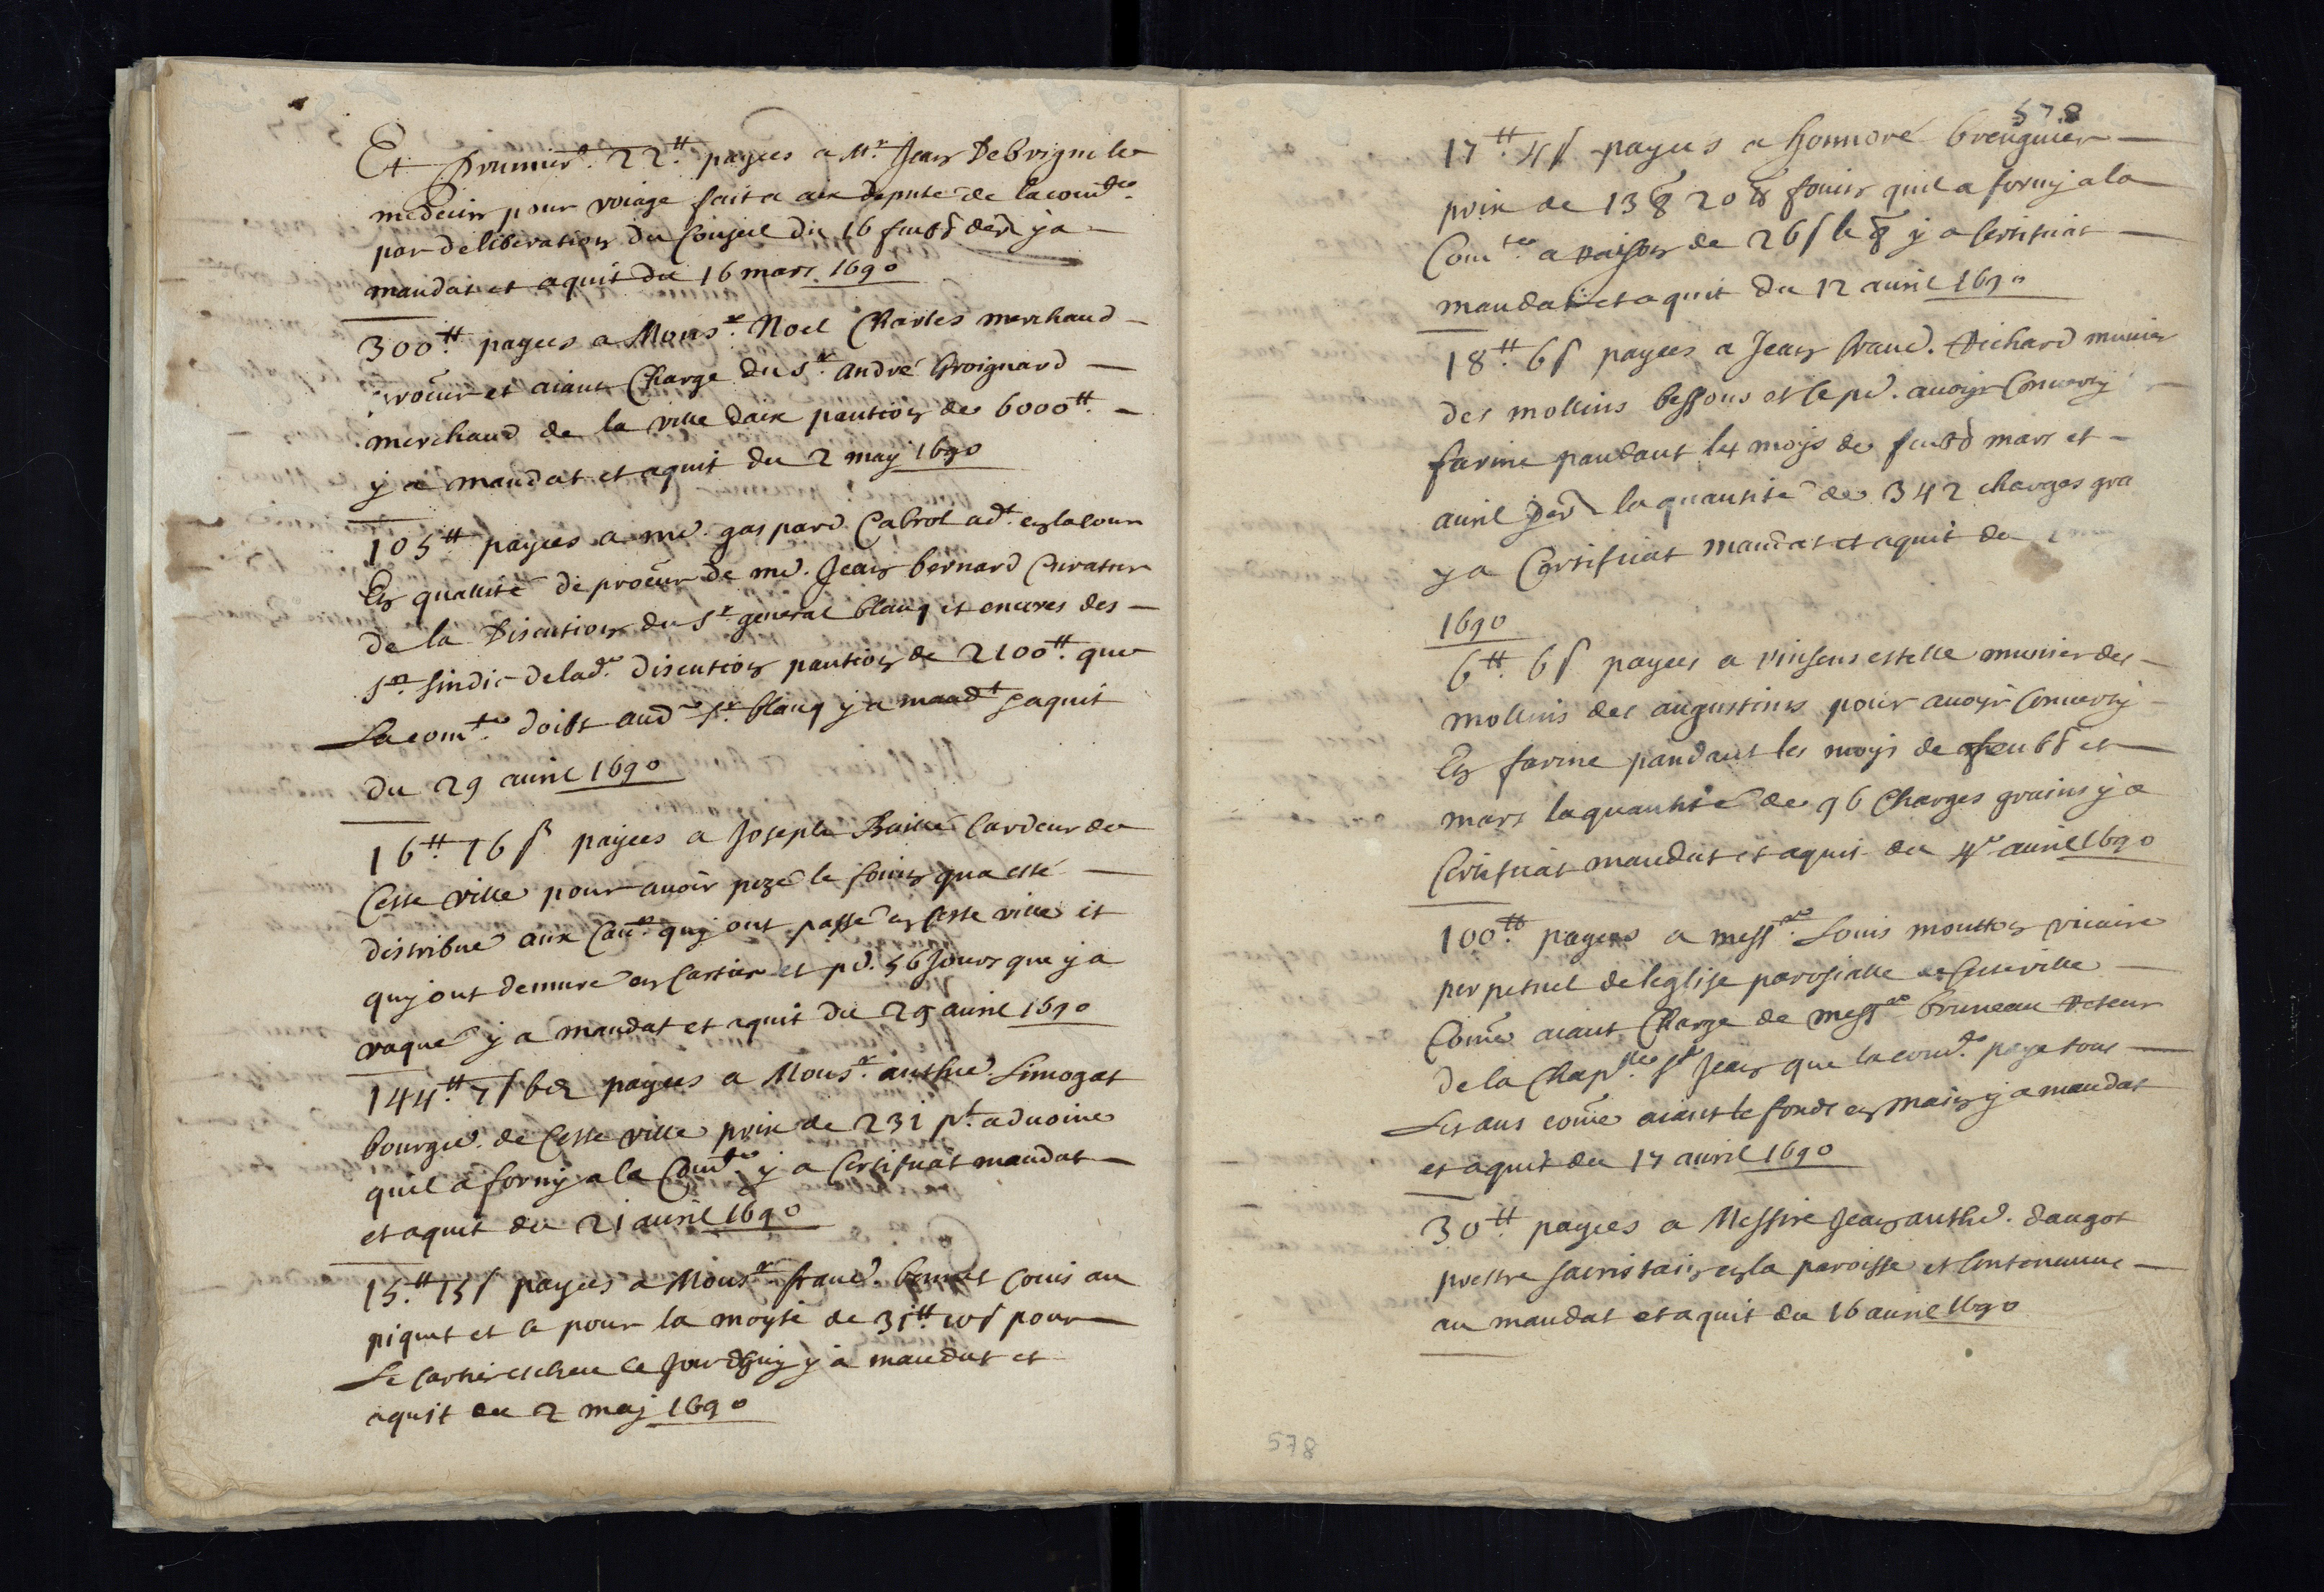 Et premier.t 22.tt payees a M.r Jean Debrignole
medecin pour voiage fait a aix depute de lacom.te
par deliberation du Conseil du 16 feubr der.r y a
mandat et aquit du 16 mars 1690
300.tt payees a Mons.r Noel Charles merchand
procur et aiant Charge du S.r André Groignard
merchand de la ville daix pantion de 6000.tt
y a mandat et aquit du 2 may 1690
105.tt payees a me. gaspard Cabrol ad.t en lacour
En quallité de procur de me. Jean bernard Curateur
de la Discution du S.r general blanq et encores des
S.rs sindic delad.e discution pantion de 2100.tt que
La com.te doibt aud S.r blanq y a mand.t & aquit
du 29 auril 1690
16.tt 16 s payees a Joseph Baille Cardeur de
Ceste ville pour auoir pezé le foins qua esté
distribue aux Cau.rs quy ont passé en Ceste ville et
quy ont demuré en Cartier et pd. 56 Jours que y a
vaqué y a mandat et aquit du 29 auril 1690
144.tt 7 s 6 d payees a Mons.r anthe. Limogat
bourgs. de Ceste ville prix de 231 p.l aduoine
quil a forny a la Com.te y a Certificat mandat
et aquit du 21 auril 1690
15.tt 15 s payees a Mons.r franc.s bonnet comis au
piquet et ce pour la moytié de 31.tt 10 s pour
Le cartier escheu ce Jourdhuy y a mandat et
aquit du 2 may 1690
578
17.tt 4 s payees a honnoré breuguier
prix de 13 20 foins quil a forny a la
Com.te a raison de 26 s le y a Certificat
mandat et aquit du 12 auril 1690
18.tt 6 s payees a Jean franc. Richard munier
des mollins bessons et ce pr. auoyr Conuerty
farine pandant les moys de feubr mars et
auril der.r la quantité de 342 charges gra
y a Certificat mandat et aquit du
1690
6.tt 6 s payees a vinsens estelle munier des
mollins des augustins pour auoyr Conuerty
En farine pandant les moys de feubr et
mars la quantité de 96 Charges grains y a
Certificat mandat et aquit du 4e auril 1690
100.tt payees a mess.re Louis moutton vicaire
perpetuel de leglise parossialle de Ceste ville
Come aiant Charge de mess.re bruneau Reteur
de la Chap.lle St Jean que lacom.te paye tous
Les ans come aiant le fonds en main y a mandat
et aquit du 17 auril 1690
30.tt payees a Messire Jean anthe. daugot
prestre sacristain en la paroisse et Contenuue
au mandat et aquit du 16 auril 1690
578